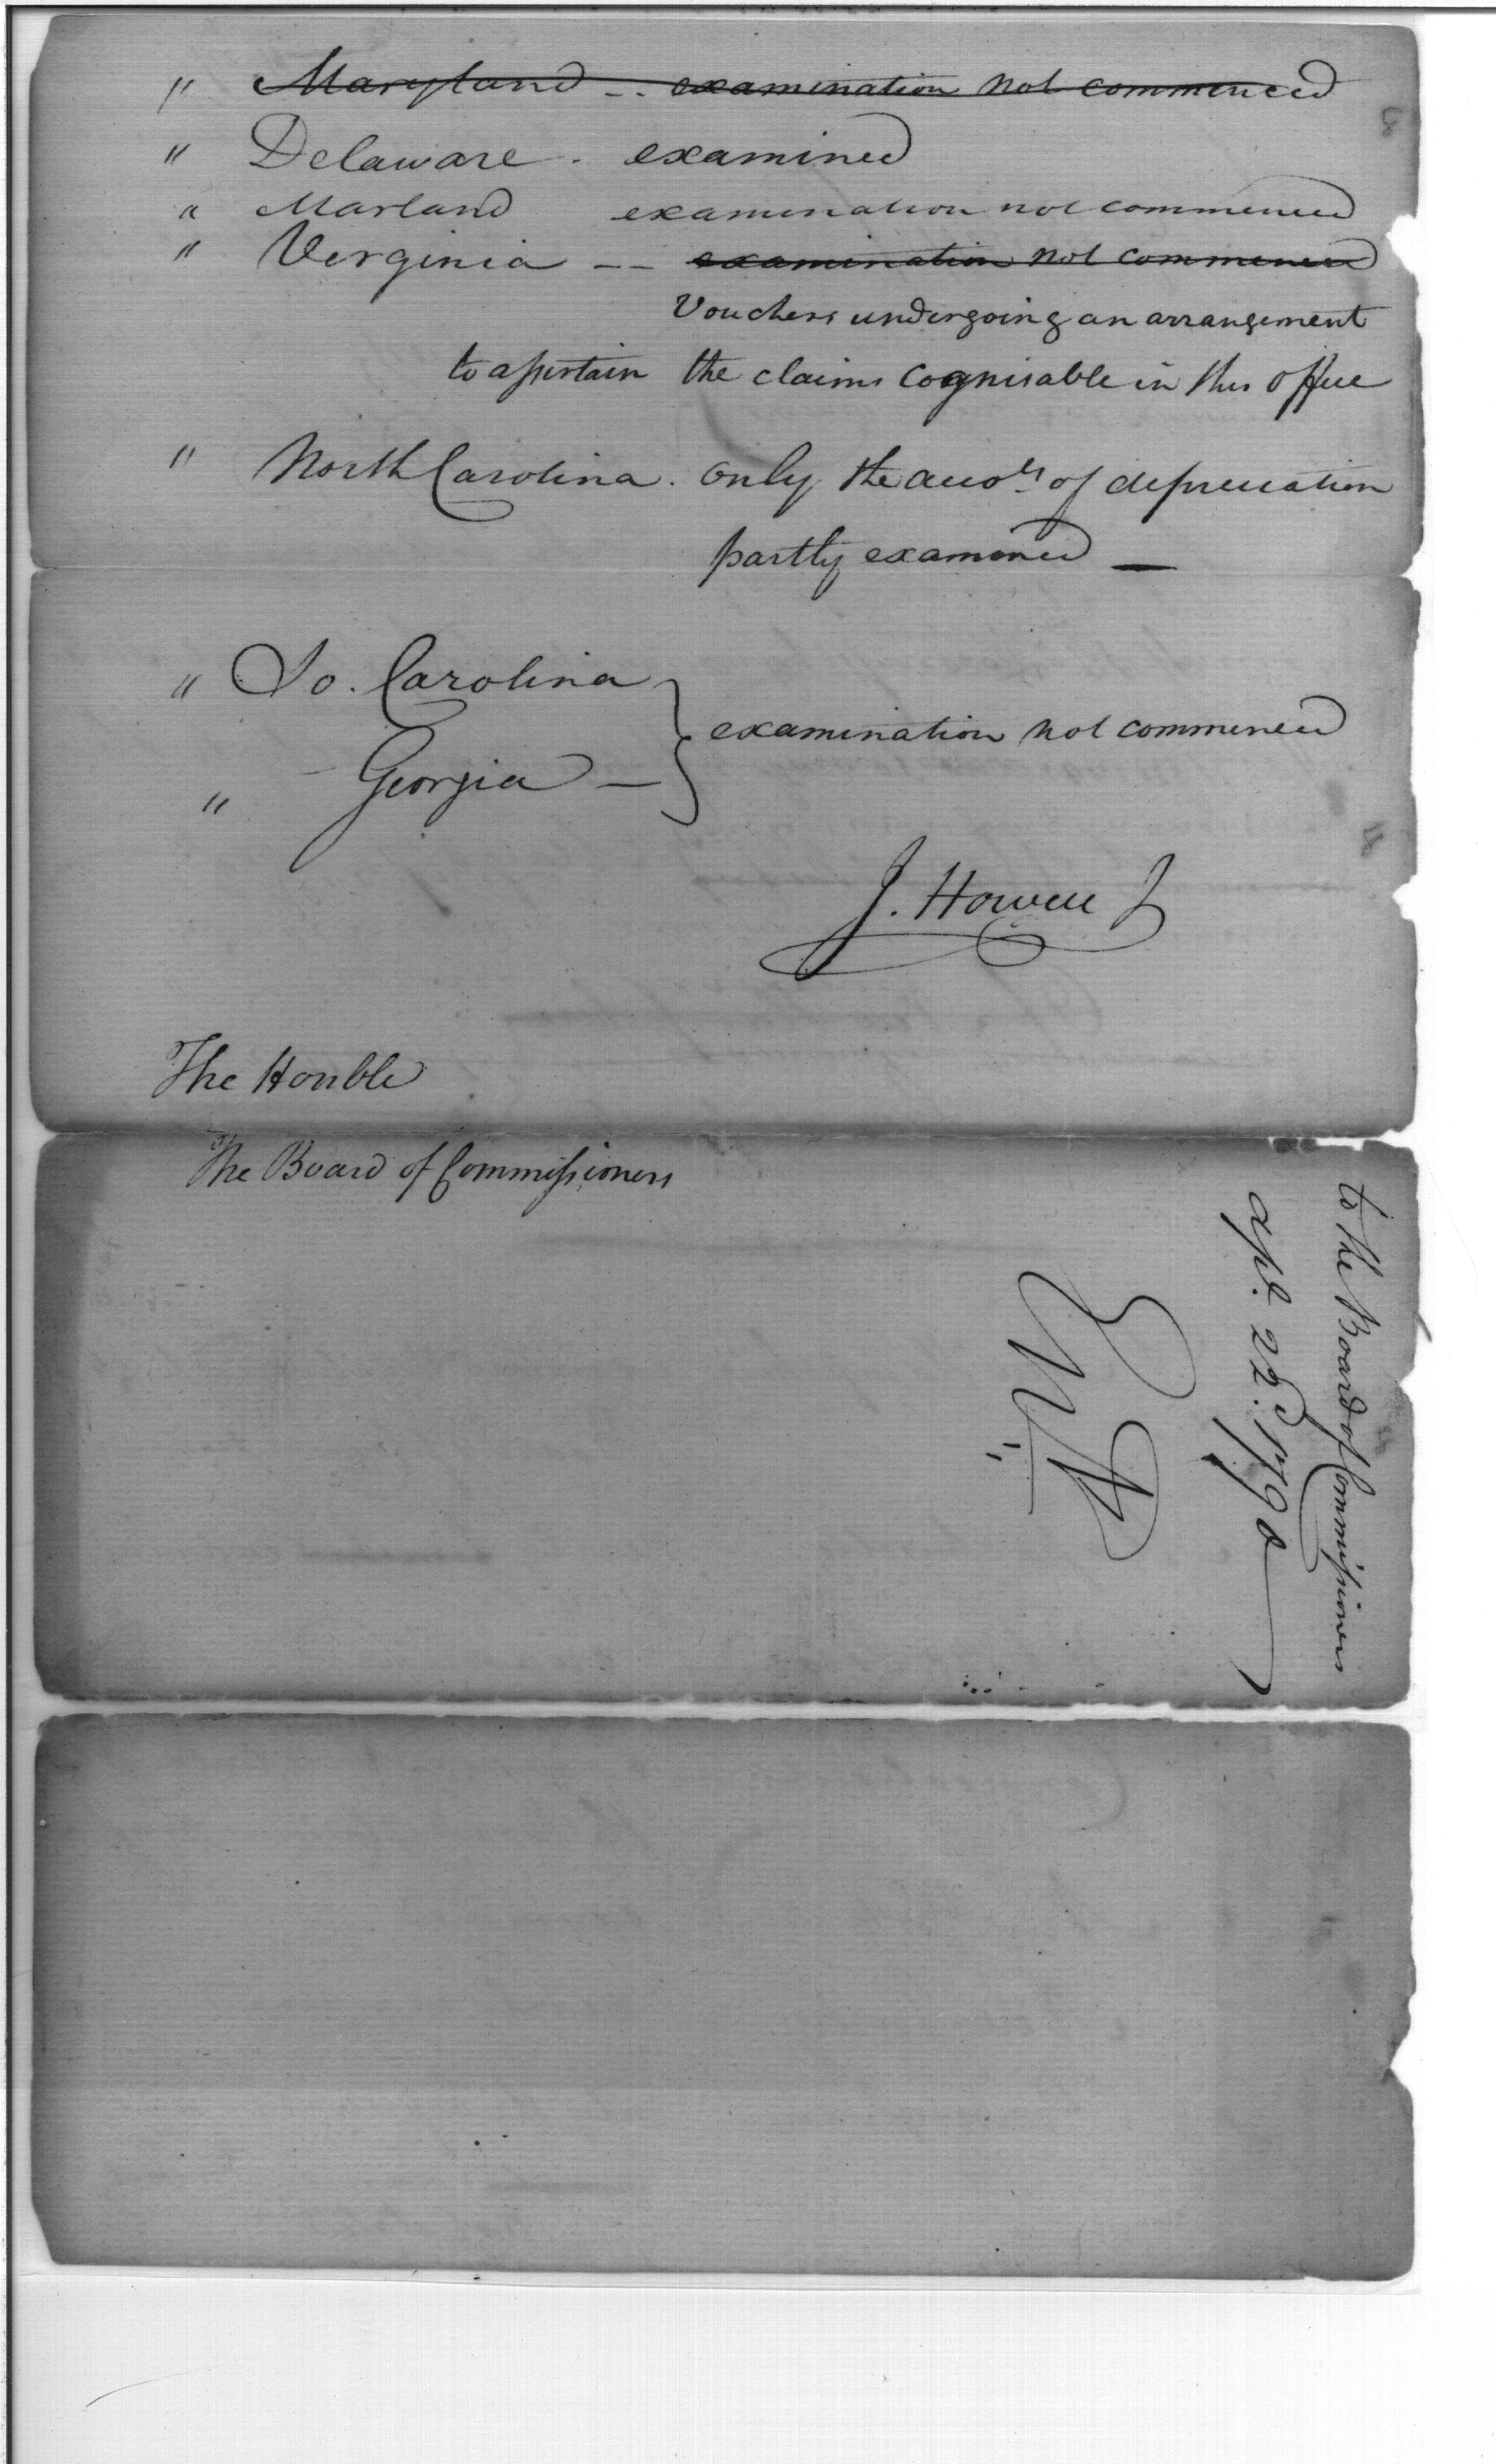 " Maryland -- examination not commenced
" Delaware - examined
" Marland examination not commenced
" Verginia -- examination not commenced
Vouchers undergoing an arrangement
to assertain the claims cognisable in this office
" North Carolina. only the accots of depreciation
partly examined —
" So. Carolina
examination not commenced
" Georgia —
J. Howell J
The Honble
The Board of Commissioners
to the Board of Commissioners
apl. 22d. 1790